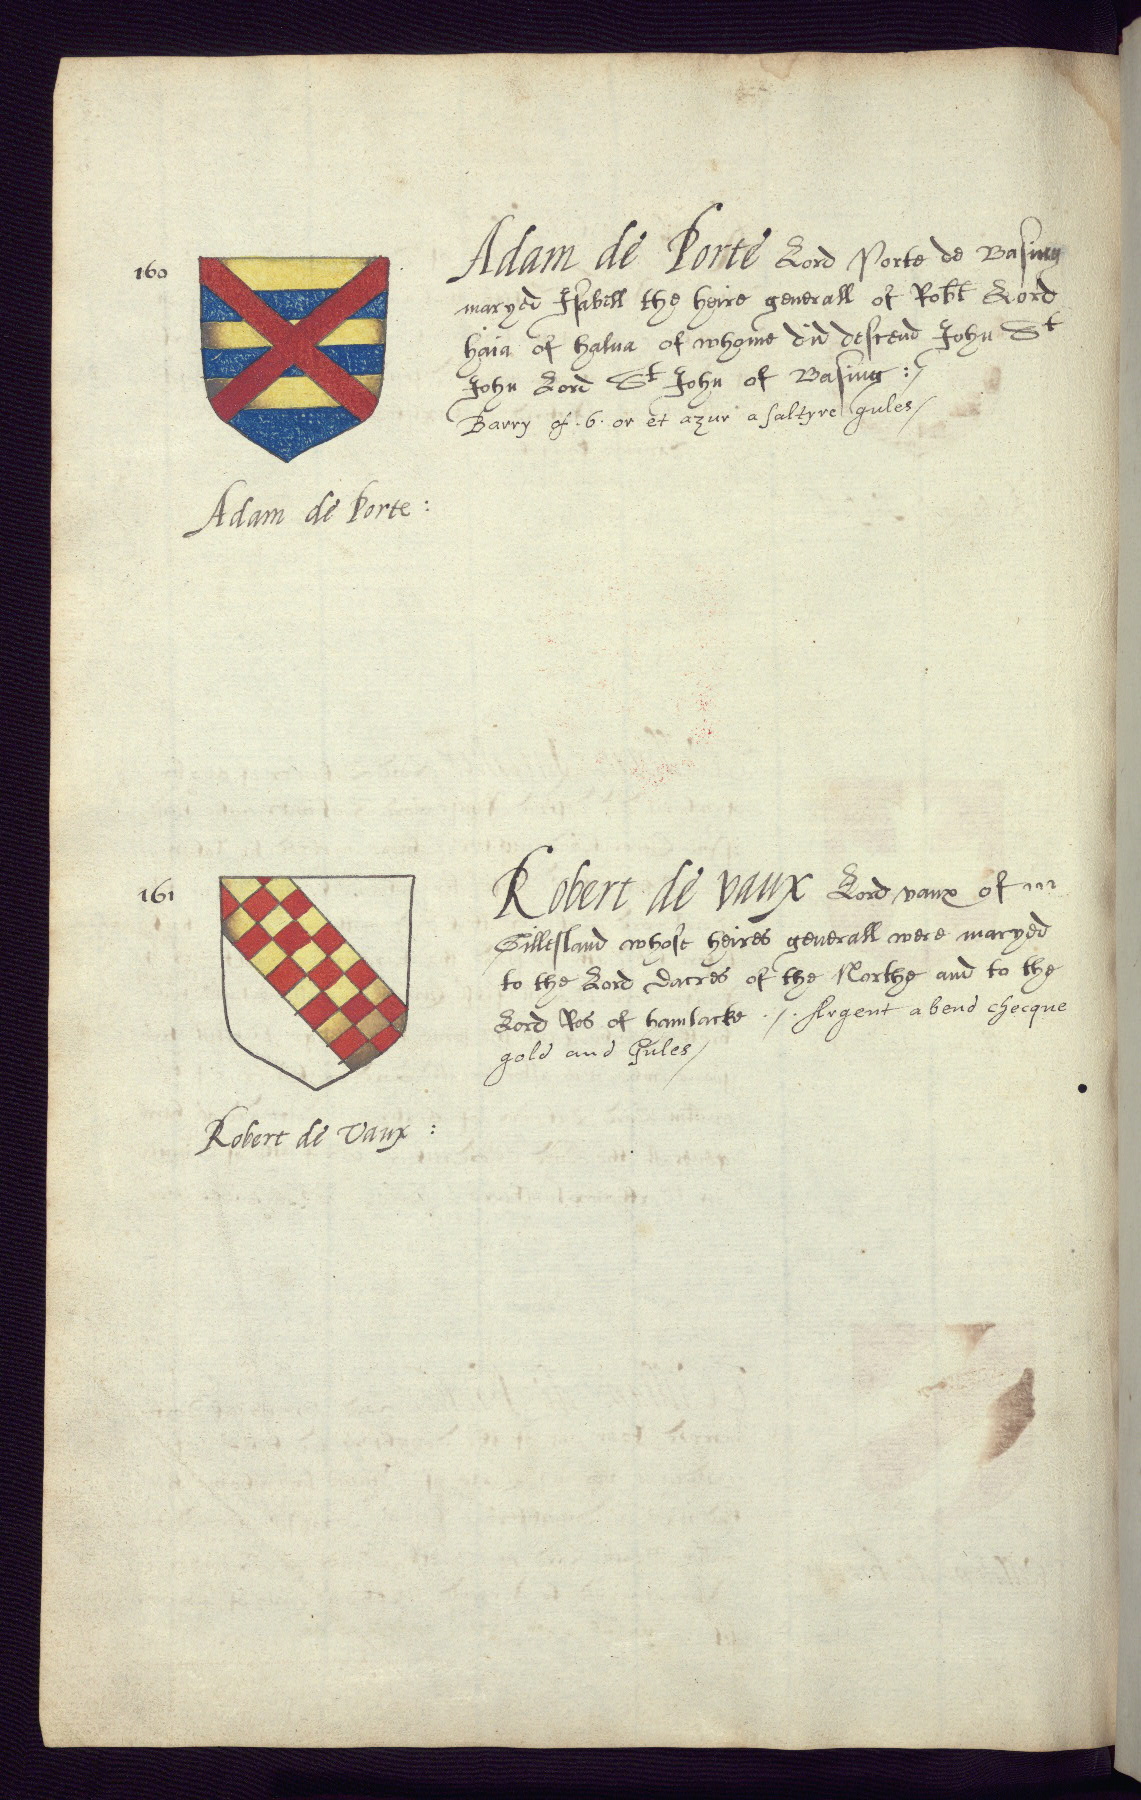 160
Adam de Porte Lord Porte de Basing
maryed Isabell the heire generall of Robt Lord
haia of halna of whome did descend John St
John Lord St John of Basing :/
Barry of .6. or et azur a saltyre gules/
Adam de Porte :
161
Robert de vaux Lord vaux of
Gillesland whose heires generall were maryed
to the Lord Dacres of the Northe and to the
Lord Ros of hamlacke ./. Argent a bend checque
gold and Gules/
Robert de Vaux :